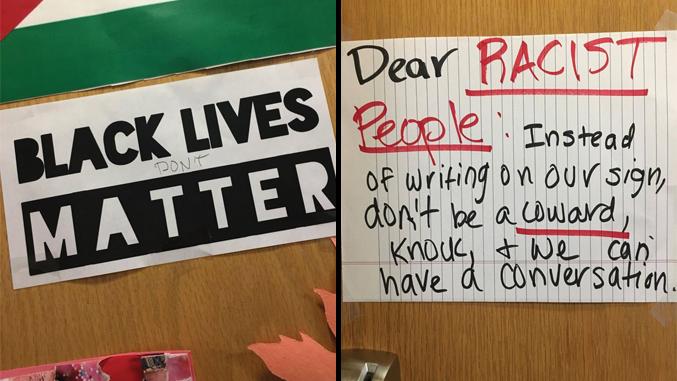 BLACK LIVES
DON'T
MATTER
Dear RACIST
People: Instead
of writing on our sign,
don't be a coward,
knock, + we can
have a conversation.